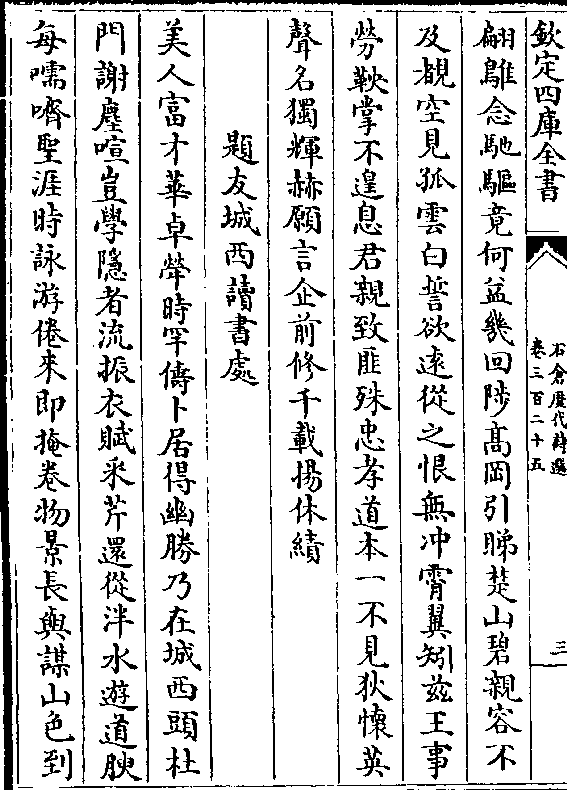 欽定四庫全書
石倉歷代詩選
卷三百二十五
三
翩鵻念馳驅竟何益幾回陟髙岡引睇楚山碧親容不
及覩空見孤雲白誓欲逺從之恨無冲霄翼矧兹王事
勞鞅掌不遑息君親致匪殊忠孝道本一不見狄懐英
聲名獨輝赫願言企前修千載揚休績
題友城西讀書處
美人富才華卓犖時罕儔卜居得幽勝乃在城西頭杜
門謝塵喧豈學隠者流振衣賦采芹還從泮水遊道腴
每嚅嚌聖涯時詠游倦來即掩卷物景長與謀山色到